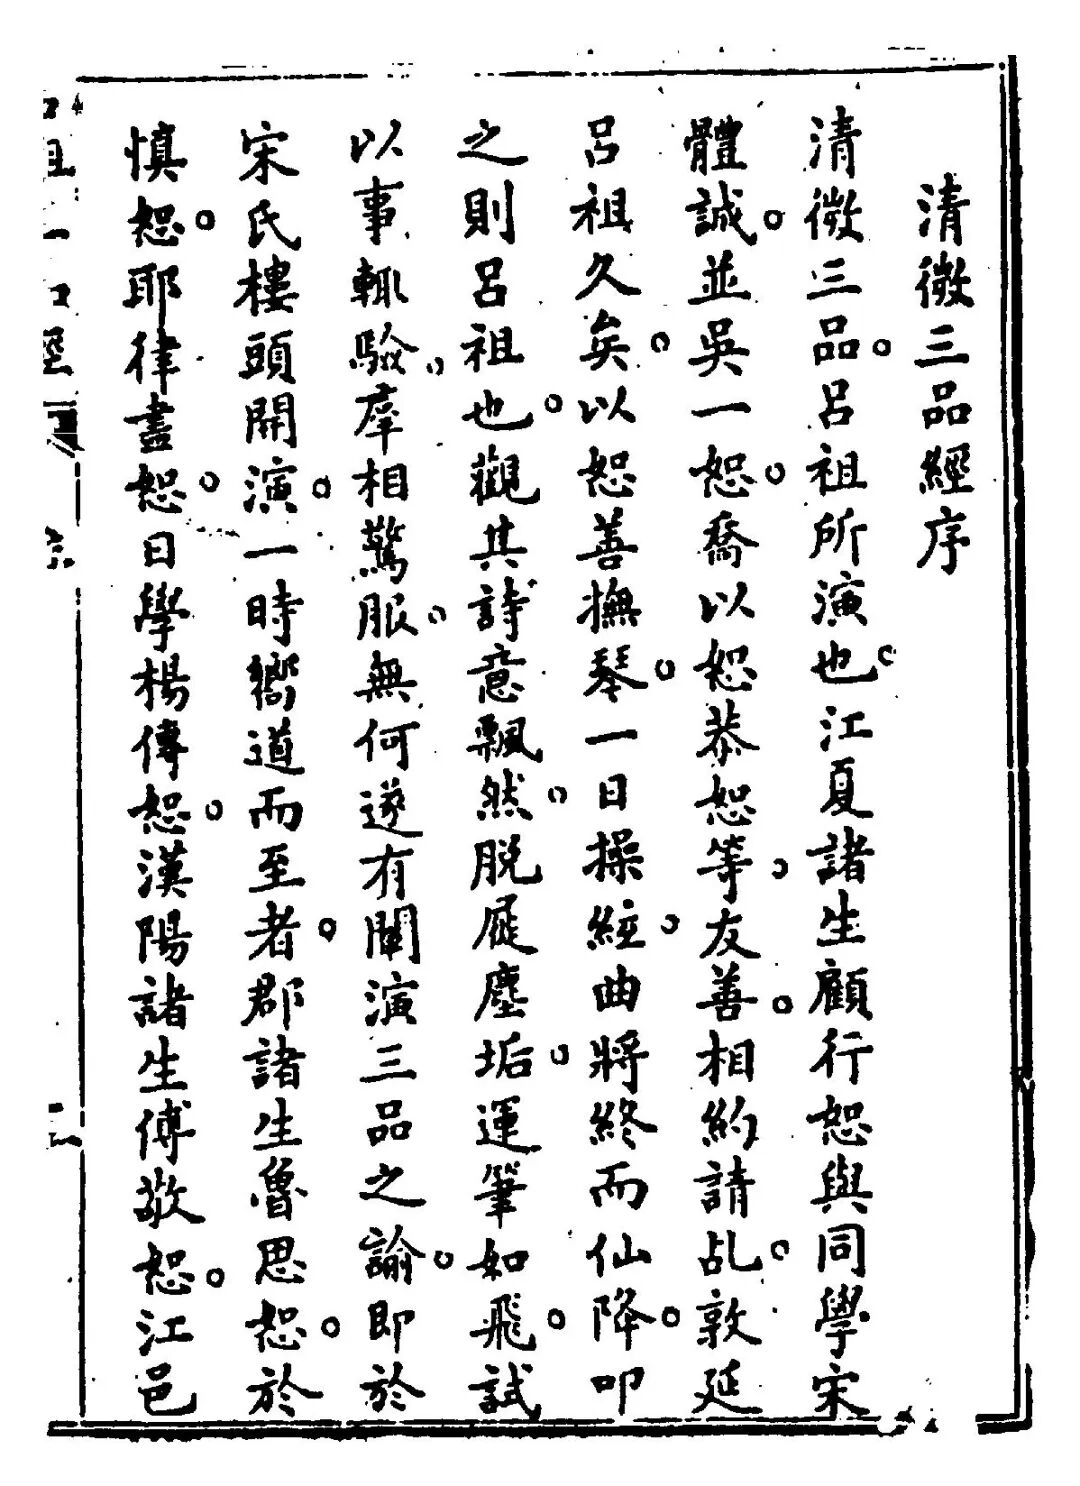 清微三品經序
清微三品。呂祖所演也。江夏諸生顧行恕與同學宋
體誠。並吳一恕。喬以恕恭恕等。友善。相約請乩。敦延
呂祖久矣。以恕善撫琴。一日操經。曲將終而仙降。叩
之則呂祖也。觀其詩意飄然。脫屣塵垢。運筆如飛。試
以事輒驗。羣相驚服。無何遂有闡演三品之諭。即於
宋氏樓頭開演。一時嚮道而至者。郡諸生魯思恕。於
慎恕。耶律盡恕。日學楊傳恕。漢陽諸生傅敬恕。江邑